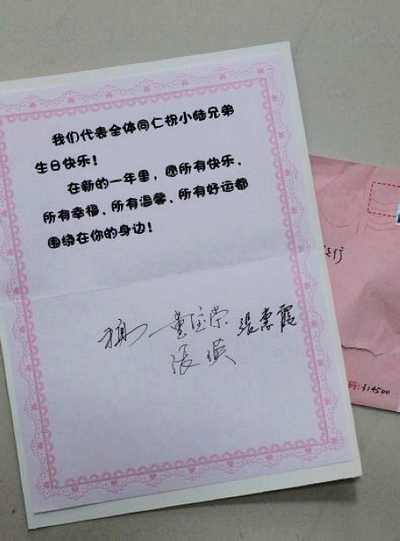 我们代表全体同仁祝小陆兄弟
生日快乐！
在新的一年里，愿所有快乐、
所有幸福、所有温馨、所有好运都
围绕在你的身边！
張惠霞
張
码：314500